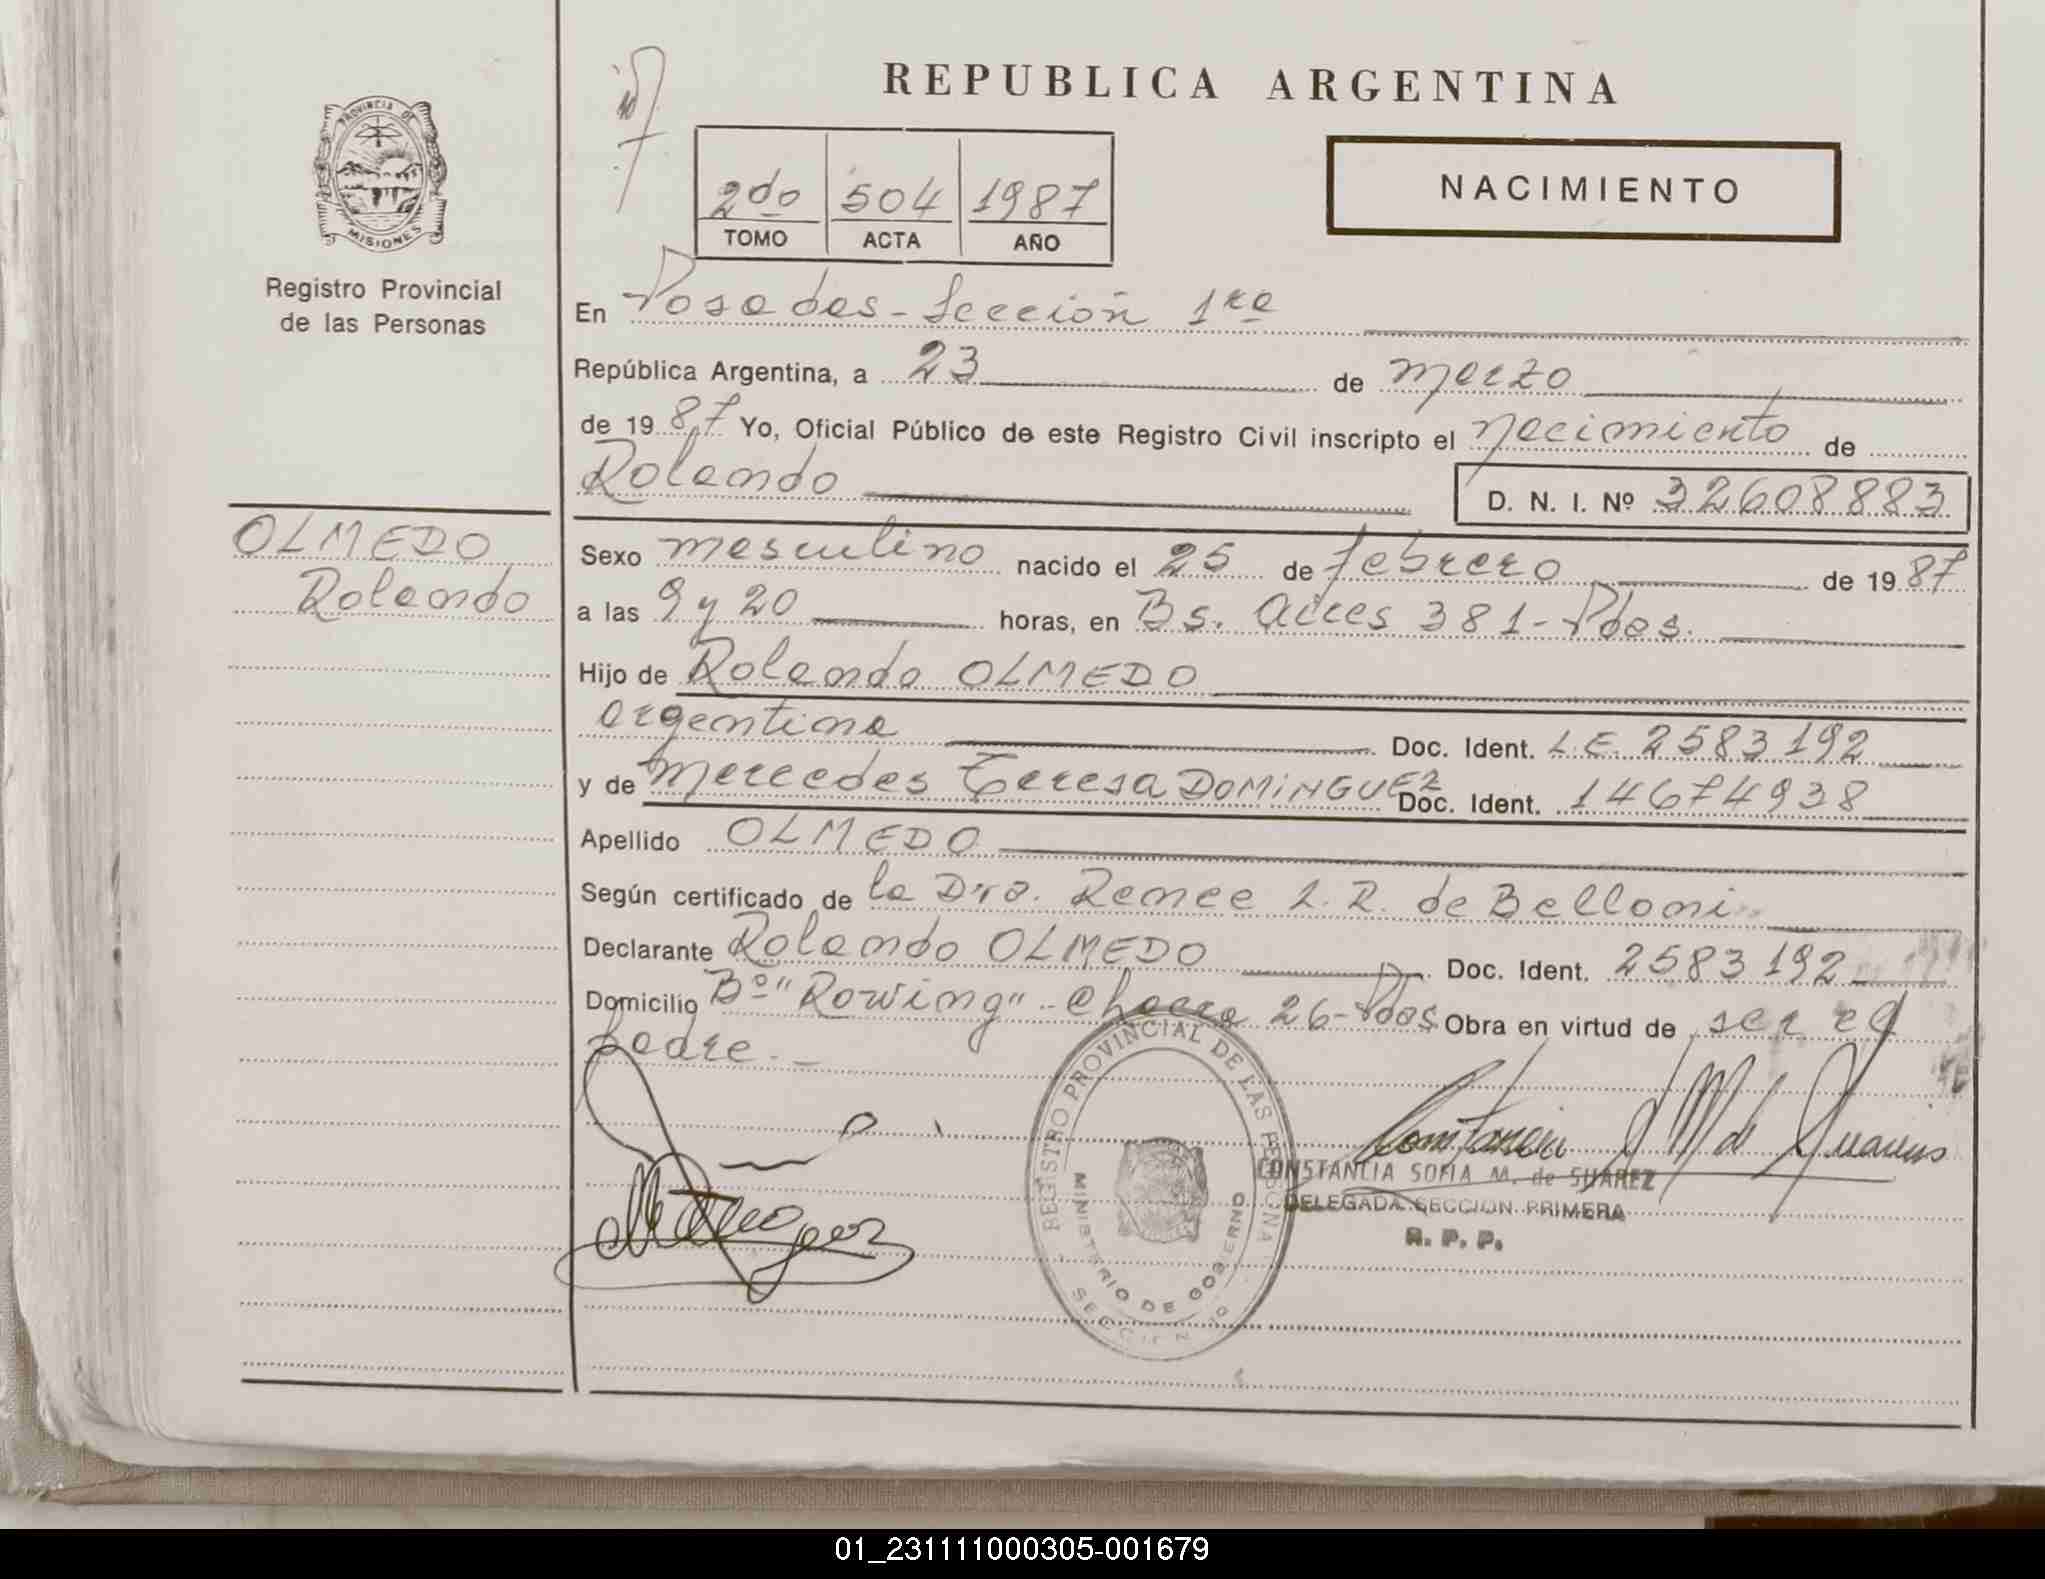 REPUBLICA ARGENTINA
PROVINCIA DE
MISIONES
Registro Provincial
de las Personas
NACIMIENTO
2do 504 1987
TOMO ACTA AÑO
En Posadas - Sección 1ra
República Argentina, a 23 de marzo
de 19 87 Yo, Oficial Público de este Registro Civil inscripto el nacimiento de
Rolando D. N. I. Nº 32608883
OLMEDO
Rolando
Sexo masculino nacido el 25 de febrero de 19 87
a las 9 y 20 horas, en Bs. Aires 381 - Pdas.
Hijo de Rolando OLMEDO
argentina Doc. Ident. L.E. 2583192
y de Mercedes Teresa DOMINGUEZ Doc. Ident. 14674938
Apellido OLMEDO
Según certificado de la Dra. Renee L. R. de Belloni
Declarante Rolando OLMEDO Doc. Ident. 2583192
Domicilio Bº "Rowing" - Chacra 26 - Pdas Obra en virtud de ser el
padre. -
REGISTRO PROVINCIAL DE LAS PERSONA
MINISTERIO DE GOBIERNO
SECCION
CONSTANCIA SOFIA M. de SUAREZ
DELEGADA SECCION PRIMERA
R. P. P.
01_231111000305-001679